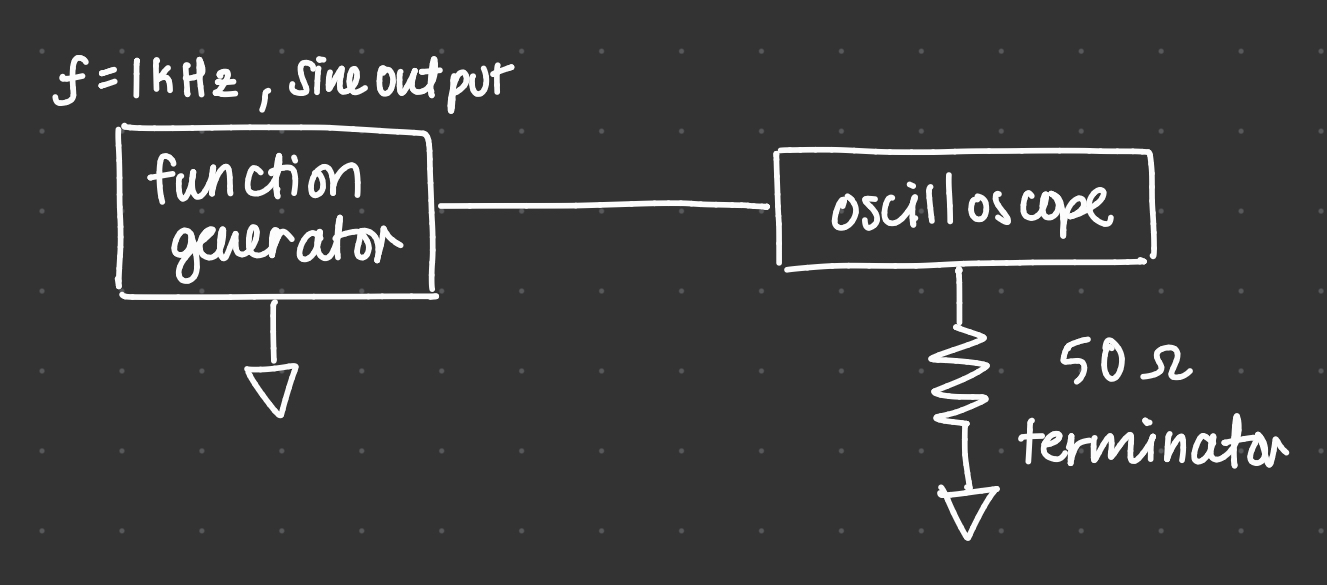 f = 1 kHz, sine output
function
generator
oscilloscope
50 Ω
terminator